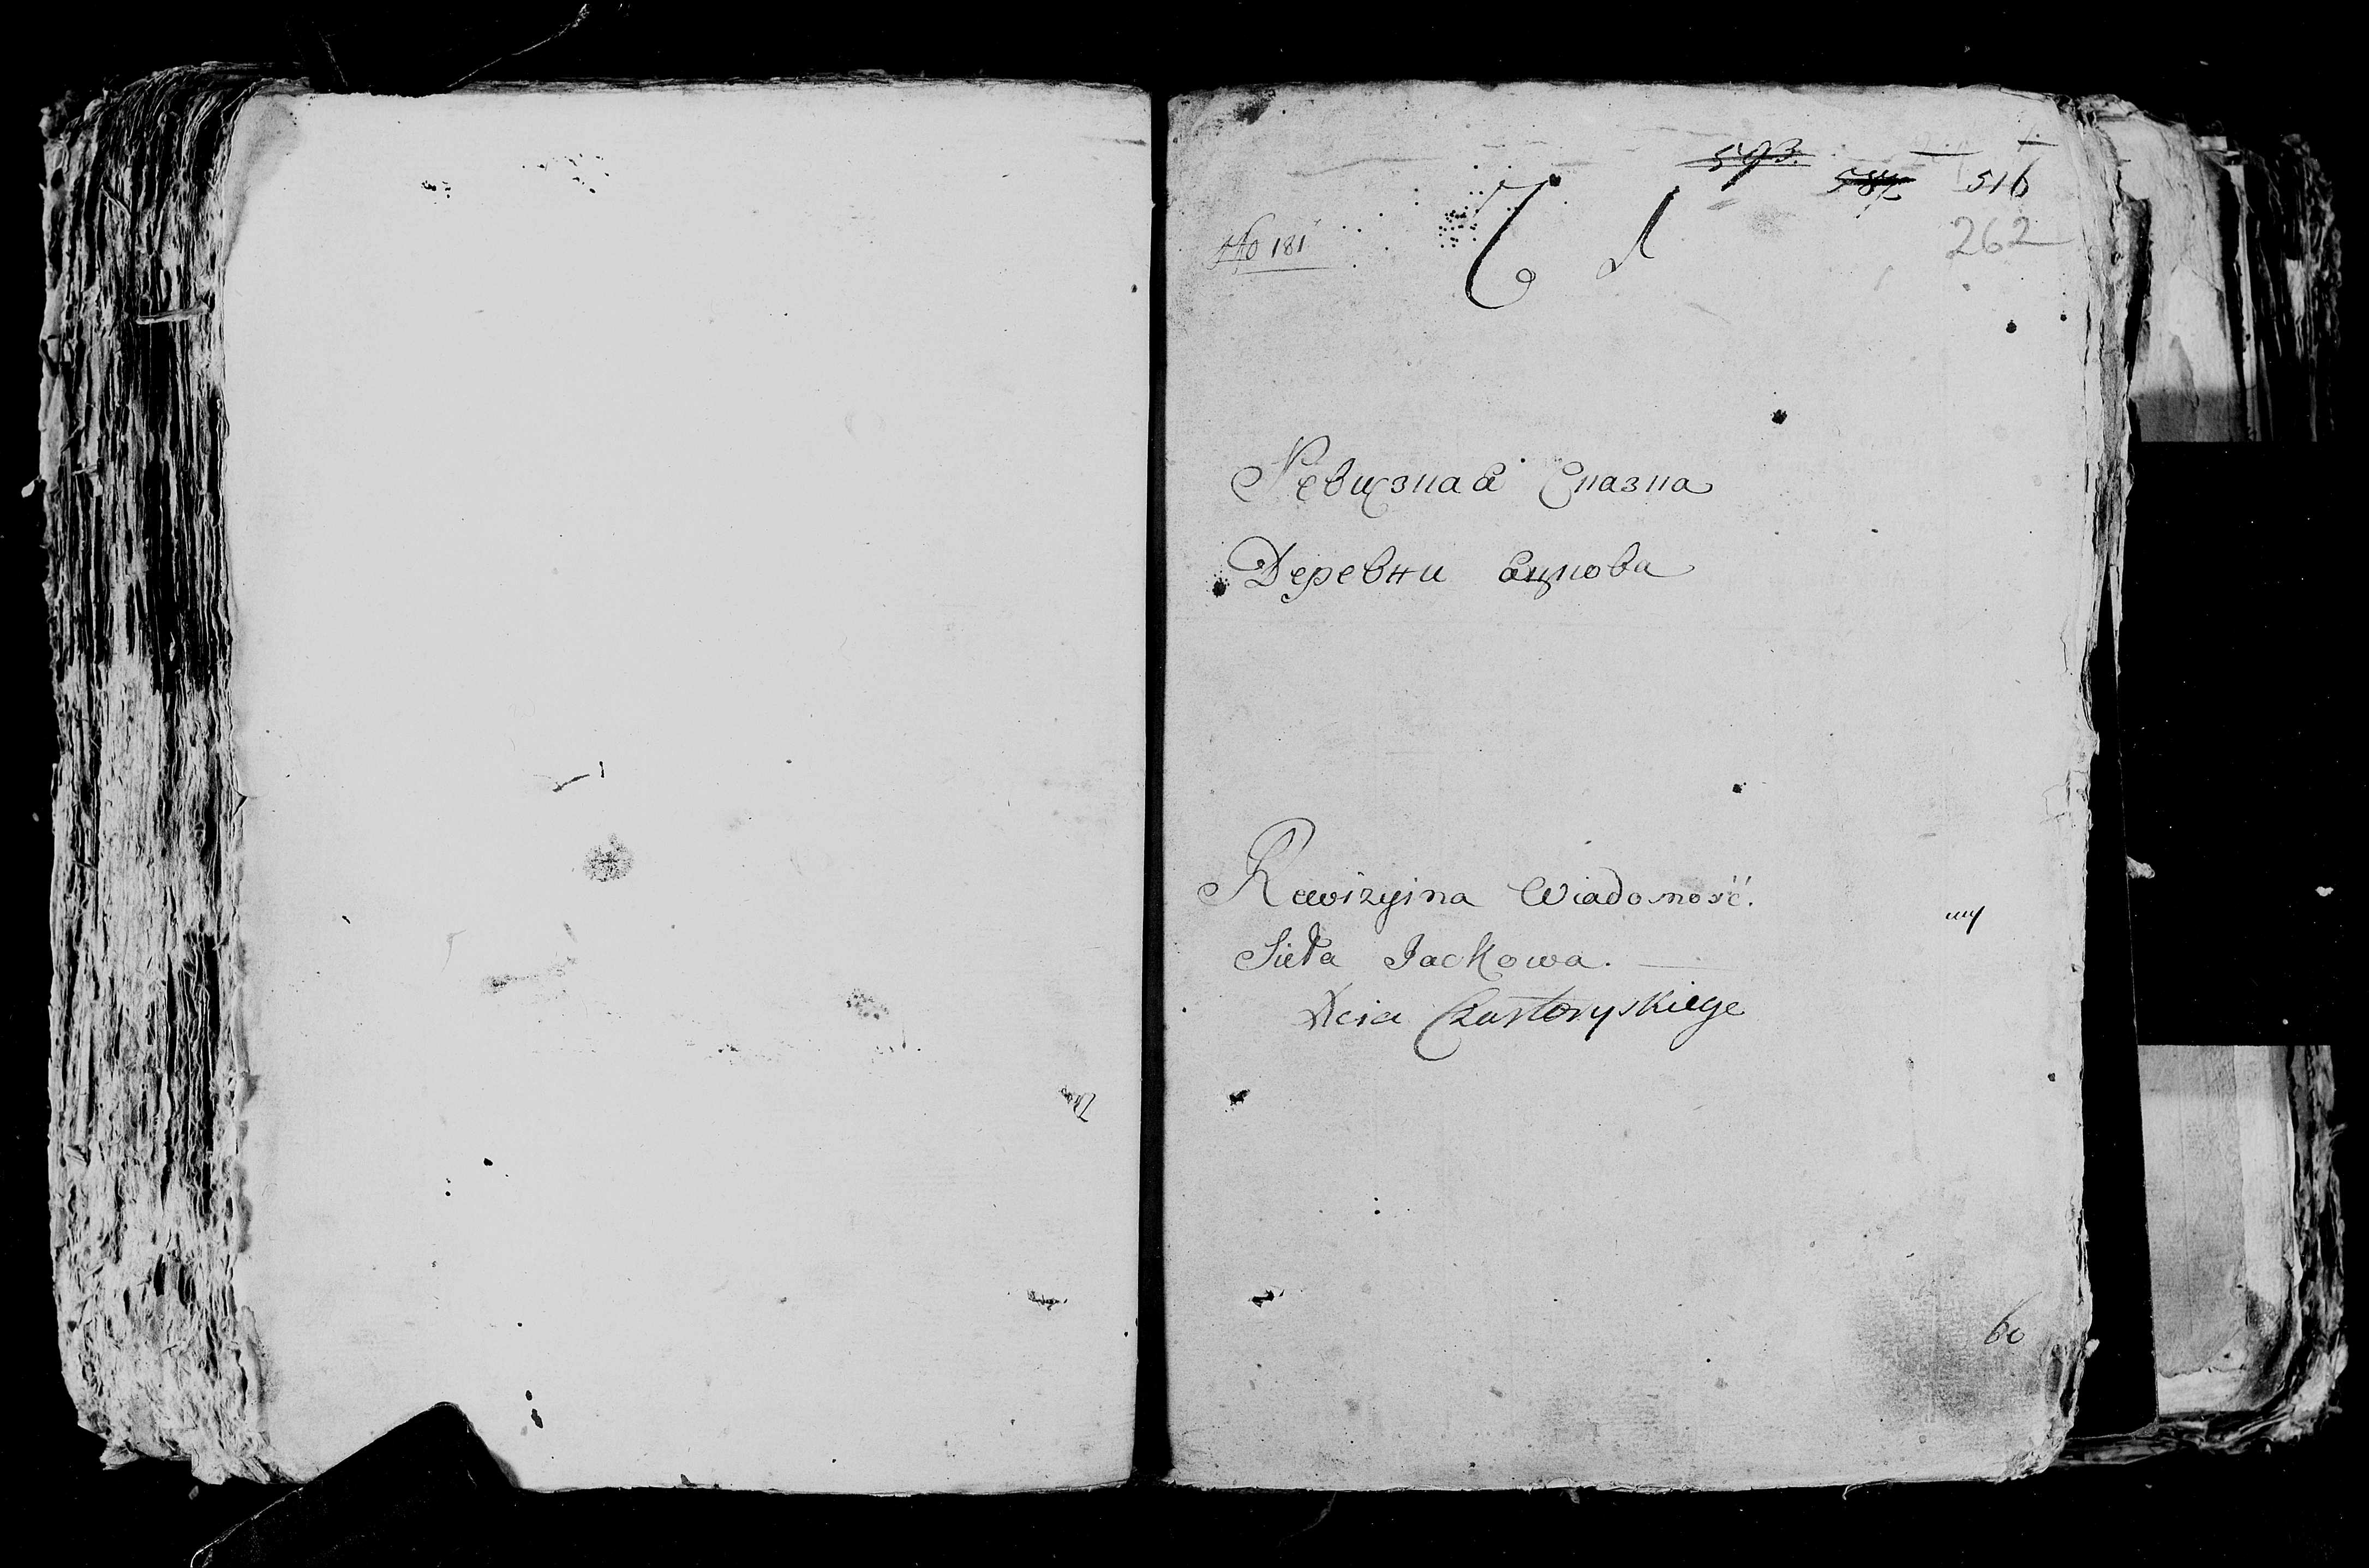 593.
584 516
262
No 181
Ревизная Сказка
Деревни Яцкова
Rewizyina Wiadomość.
Sieła Jackowa.
Xcia Czartoryskiego
60